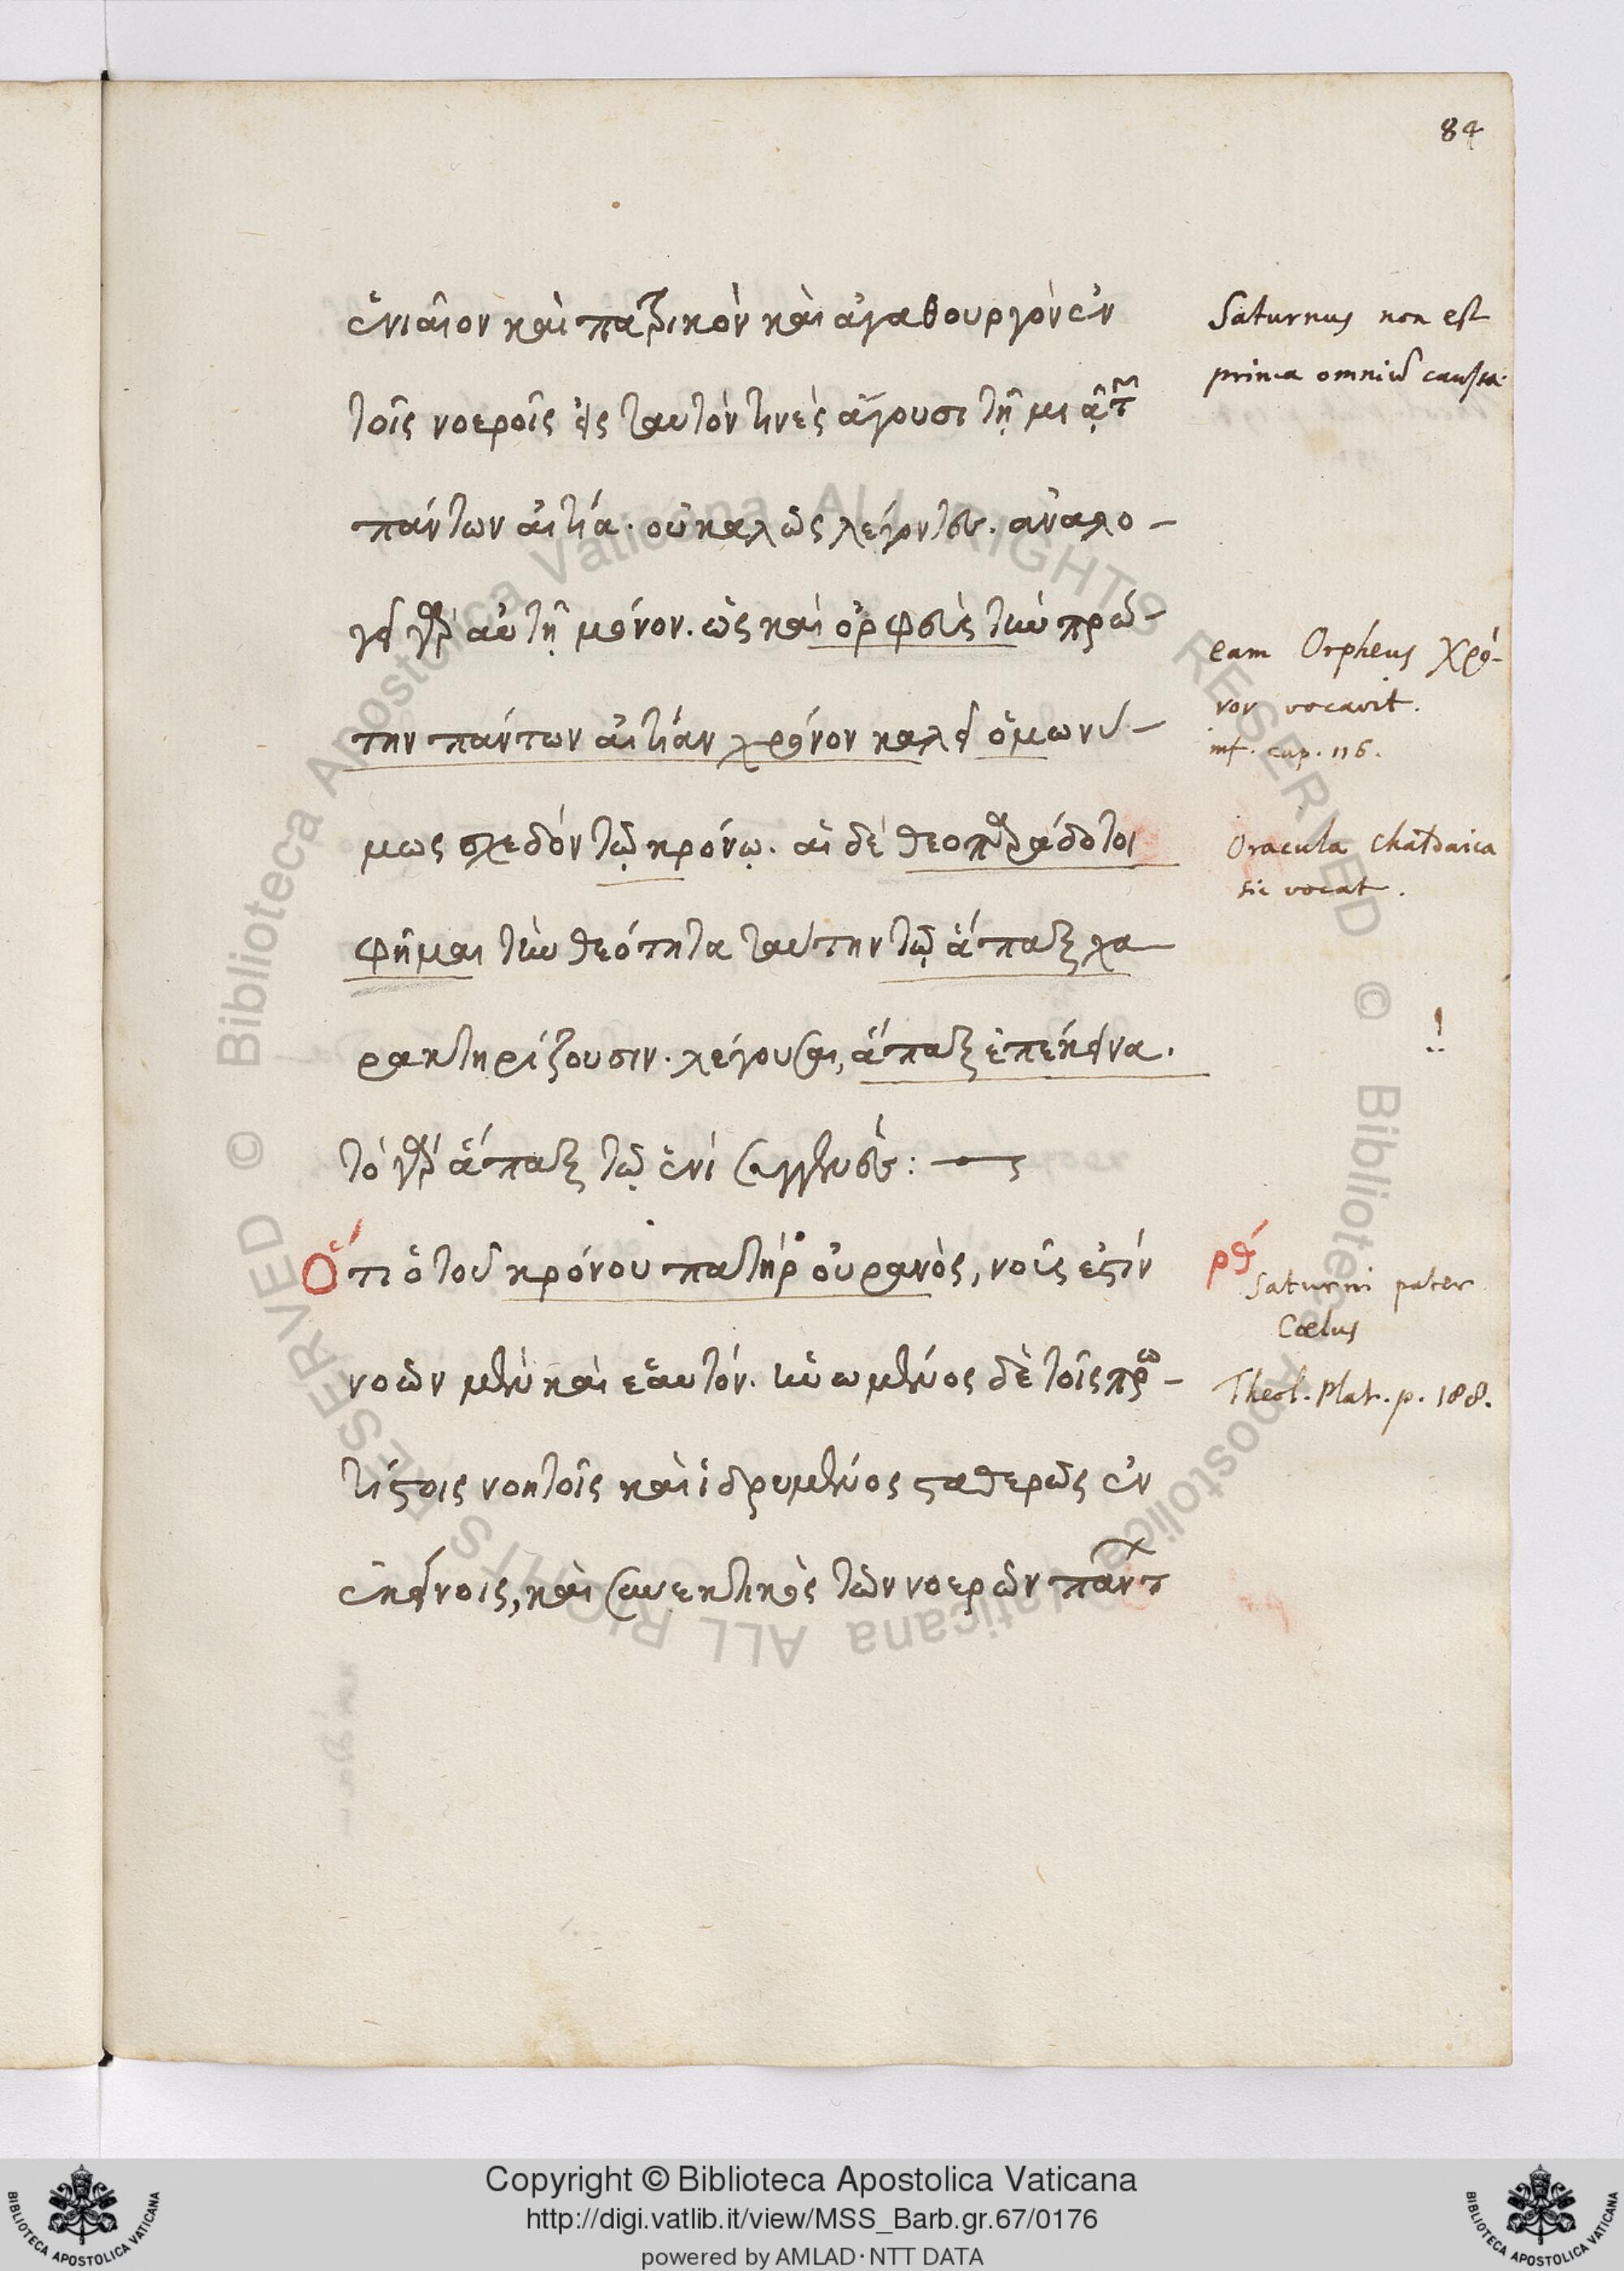 84
ἑνιαῖον καὶ πατρικὸν καὶ ἀγαθουργὸν ἐν
τοῖς νοεροῖς εἰς ταυτόν τινὲς ἄγουσι τῇ μιᾷ τῶν
πάντων αἰτίᾳ. οὐ καλῶς λέγοντες. ἀναλο-
γεῖ γὰρ αὐτῇ μόνον. ὡς καὶ ὀρφεὺς τὴν πρώ-
την πάντων αἰτίαν χρόνον καλεῖ ὁμωνύ-
μως σχεδόν τῷ κρόνῳ. αἱ δὲ θεοπαράδοτοι
φῆμαι τὴν θεότητα ταύτην τῷ ἅπαξ χα
ρακτηρίζουσιν. λέγουσαι, ἅπαξ ἐπέκεινα.
τὸ γὰρ ἅπαξ τῷ ἑνὶ συγγενές:
Ὅτι ὁ τοῦ κρόνου πατήρ οὐρανὸς, νοῦς ἐστίν
νοῶν μὲν καὶ ἑαυτόν. ἡνωμένος δὲ τοῖς πρω-
τίστοις νοητοῖς καὶ ἱδρυμένος σταθερῶς ἐν
ἐκείνοις, καὶ συνεκτικὸς τῶν νοερῶν πάντων
Saturnus non est
prima omniū caussa.
eam Orpheus χρό-
νον vocavit.
inf. cap. 116.
Oracula Chaldaica
sic vocat.
!
ρθʹ
Saturni pater
Cœlus
Theol. Plat. p. 188.
© Biblioteca Apostolica Vaticana ALL RIGHTS RESERVED © Biblioteca Apostolica Vaticana ALL RIGHTS RESERVED
Copyright © Biblioteca Apostolica Vaticana
http://digi.vatlib.it/view/MSS_Barb.gr.67/0176
powered by AMLAD·NTT DATA
BIBLIOTECA APOSTOLICA VATICANA
BIBLIOTECA APOSTOLICA VATICANA